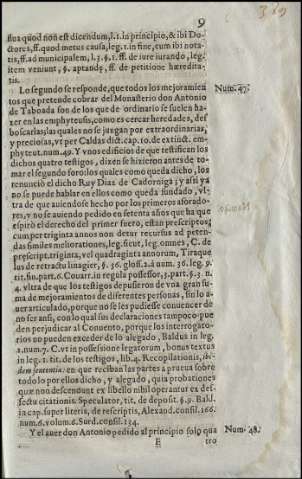 9
suua quod non est dicendum, l. 1. in principio, & ibi Do-
ctores, ff. quod metus causa, leg. 1. in fine, cum ibi nota-
tis, ff. ad municipalem, l. 3. §. 1. ff. de iure iurando, leg.
item veniunt, §. aptandū, ff. de petitione hæredita-
tis.
Lo segundo se responde, que todos los mejoramien
tos que pretende cobrar del Monasterio don Antonio
de Taboada son de los que de ordinario se suelen ha-
zer en las emphyteusis, como es cercar heredades, des
boscarlas, las quales no se juzgan por extraordinarias,
y preciosas, vt per Caldas dict. cap. 10. de extinct. em-
phyteut. num. 49. Y vnos edificios de que testifican los
dichos quatro testigos, dizen se hizieron antes de to-
mar el segundo foro: los quales como queda dicho, los
renunciò el dicho Ruy Dias de Cadorniga; y assi ya
no se puede hablar en ellos como queda fundado, vl-
tra de que auiendose hecho por los primeros aforado-
res, y no se auiendo pedido en setenta años que ha que
espirò el derecho del primer fuero, estàn prescriptos;
cum per triginta annos non detur recursus ad peten-
das similes meliorationes, leg. sicut, leg. omnes, C. de
prescript. triginta, vel quadraginta annorum, Tiraque
llus de retractu linagier, §. 36. glos. 2. à num. 36. leg. p.
tit. fin. part. 6. Couarr. in regula possessor, 3. part. §. 3. n.
4. vltra de que los testigos depusieron de vna gran su-
ma de mejoramientos de diferentes personas, sin lo a-
uer articulado, porque no se les pudiesse conuencer de
no ser ansi, con lo qual sus declaraciones tampoco pue
den perjudicar al Conuento, porque los interrogato-
rios no pueden exceder de lo alegado, Baldus in leg.
2. num. 7. C. vt in possessione legatorum, bonus textus
in leg. 1. tit. de los testigos, lib. 4. Recopilationis, ibi-
dem sententia: en que reciban las partes a prueua sobre
todo lo por ellos dicho, y alegado, quia probationes
que non descendunt ex libello nihil operantur ex de-
fectu citationis. Speculator, tit. de deposit. §. 9. Bald.
in cap. super literis, de rescriptis, Alexand. consil. 166.
num. 6. volum. 6. Surd. consil. 134.
Y el auer don Antonio pedido al principio solo qua
E
tro
Num. 47.
Num. 48.